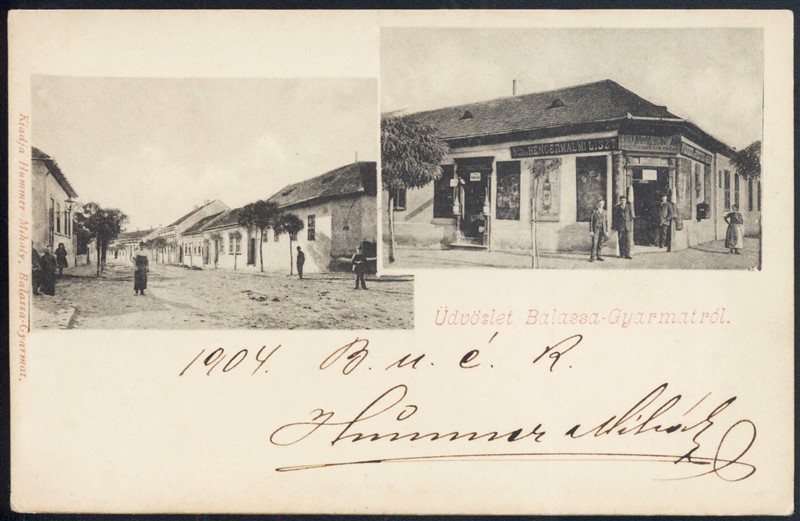 HENGERMALMI LISZT
Üdvöslet Balassa-Gyarmatról.
Kiadja Hummer Mihály, Balassa-Gyarmat.
1904. B. u. é. k.
Hummer Mihály